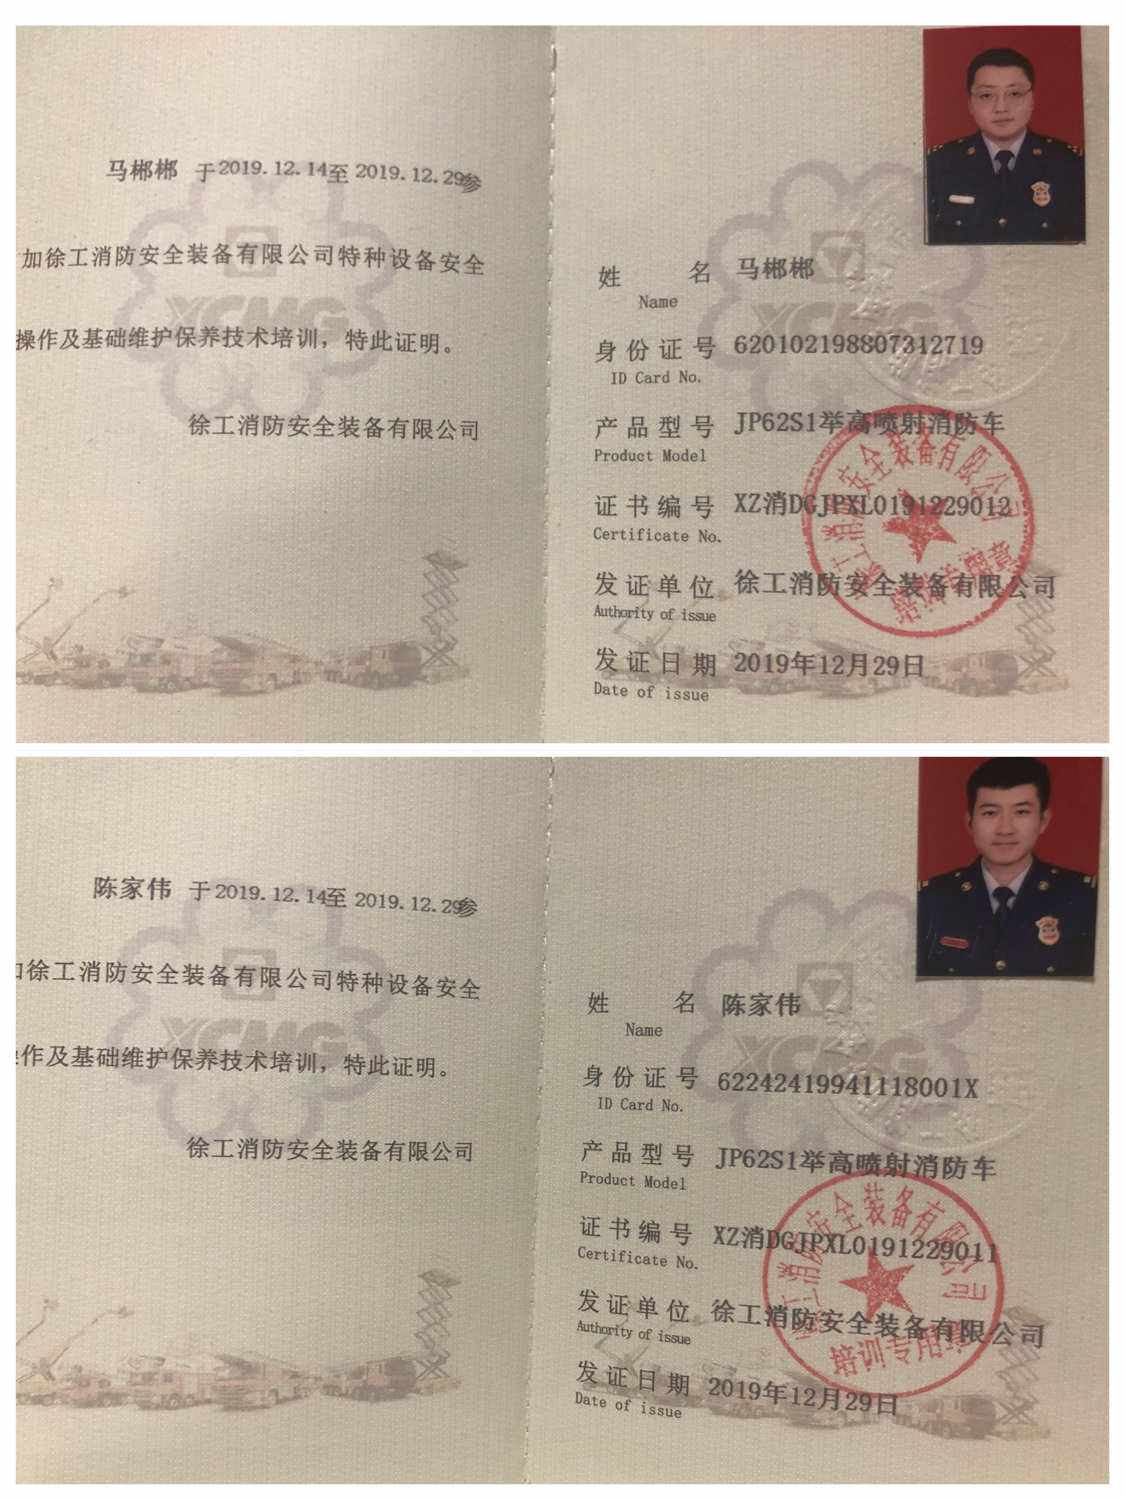 马郴郴 于2019.12.14至 2019.12.29参
加徐工消防安全装备有限公司特种设备安全
操作及基础维护保养技术培训，特此证明。
徐工消防安全装备有限公司
XCMG
姓 名 马郴郴
Name
身份证号 620102198807312719
ID Card No.
产品型号 JP62S1举高喷射消防车
Product Model
证书编号 XZ消DGJPXL0191229012
Certificate No.
发证单位 徐工消防安全装备有限公司
Authority of issue
发证日期 2019年12月29日
Date of issue
XCMG
徐工消防安全装备有限公司
培训专用章
陈家伟 于2019.12.14至 2019.12.29参
加徐工消防安全装备有限公司特种设备安全
操作及基础维护保养技术培训，特此证明。
徐工消防安全装备有限公司
XCMG
姓 名 陈家伟
Name
身份证号 62242419941118001X
ID Card No.
产品型号 JP62S1举高喷射消防车
Product Model
证书编号 XZ消DGJPXL0191229011
Certificate No.
发证单位 徐工消防安全装备有限公司
Authority of issue
发证日期 2019年12月29日
Date of issue
XCMG
徐工消防安全装备有限公司
培训专用章